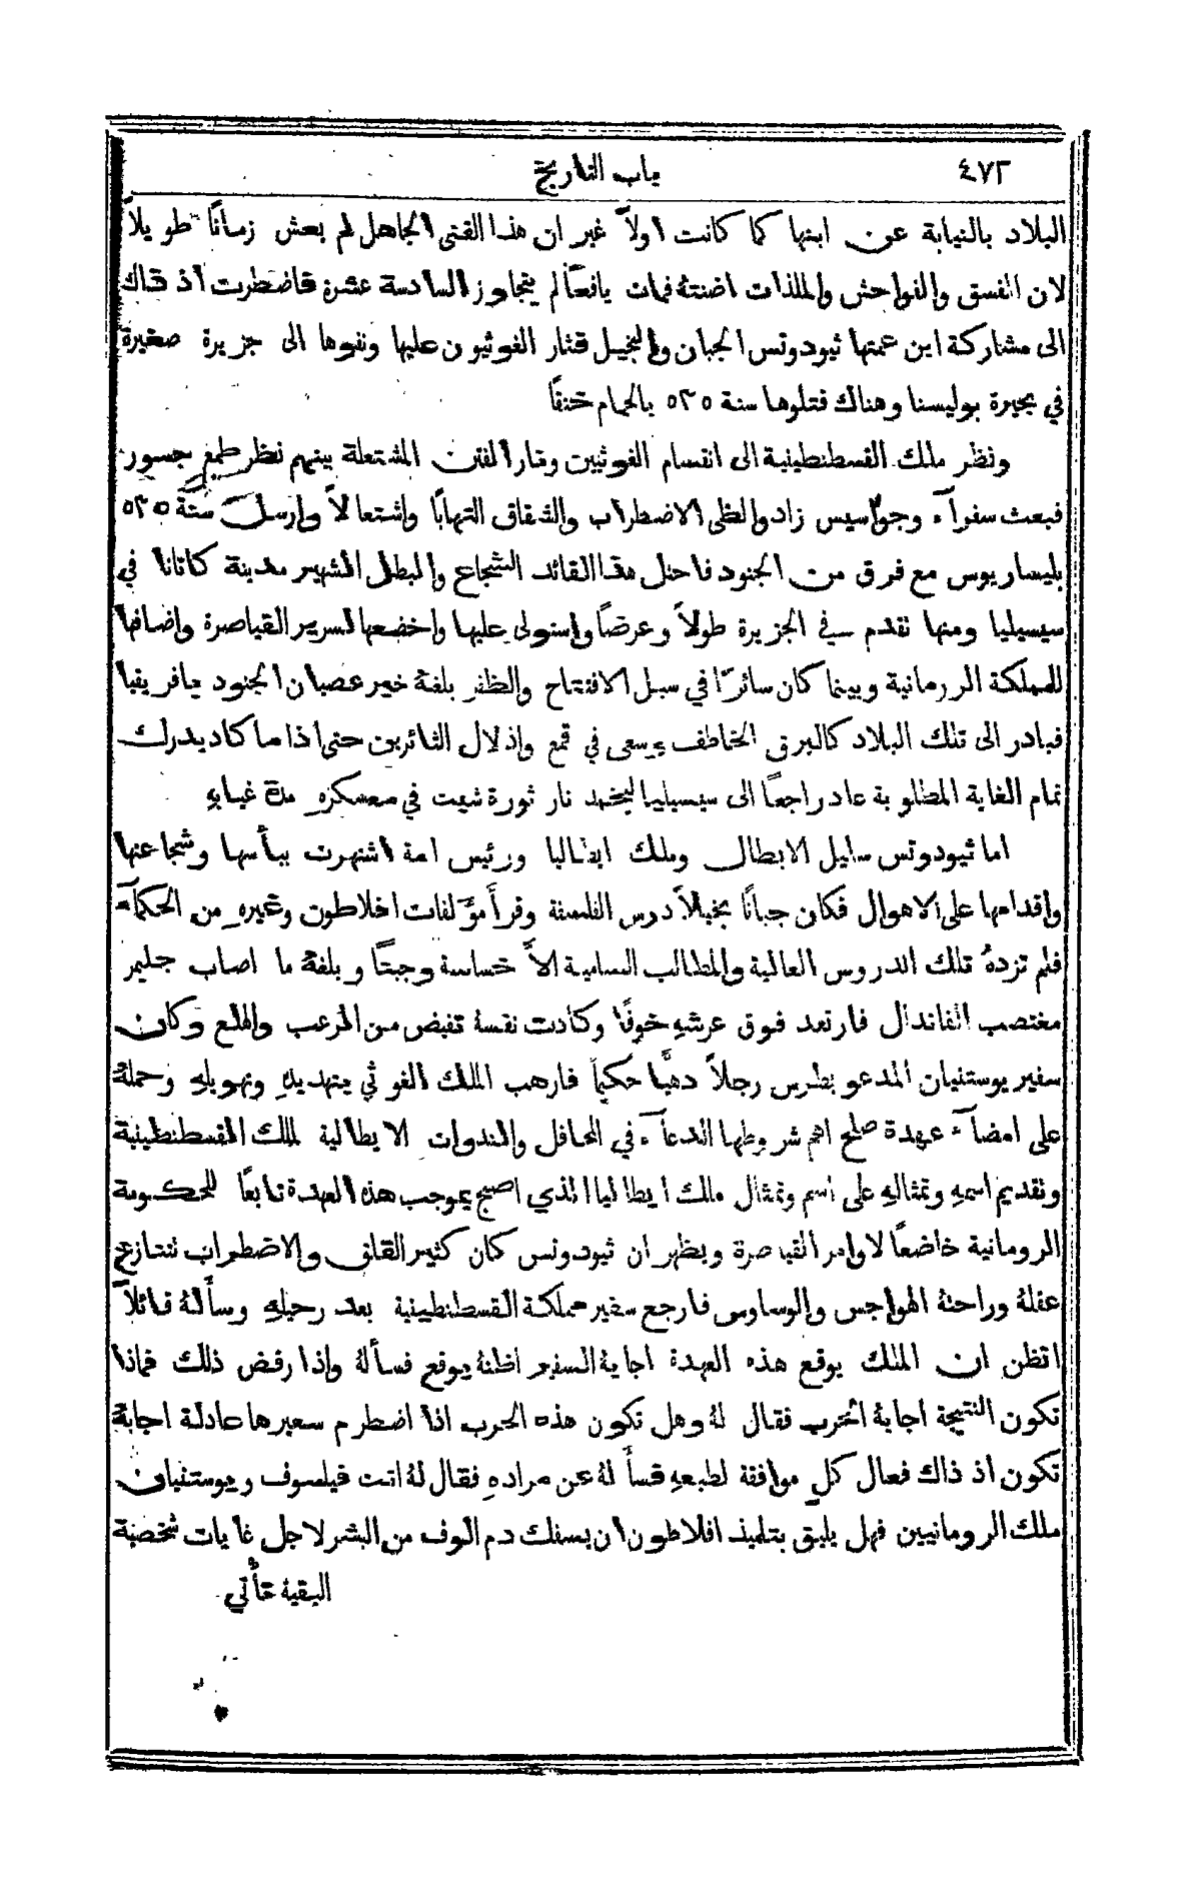 ٤٧٢ باب التاريخ
البلاد بالنيابة عن ابنها كما كانت اولاً غير ان هذا الفتى الجاهل لم يعش زمانًا طويلاً
لان الفسق والفواحش والملذات اضنتهُ فمات يافعًا لم يتجاوز السادسة عشرة فاضطرت اذ ذاك
الى مشاركة ابن عمتها ثيودوتس الجبان والبخيل فثار الغوثيون عليها ونفوها الى جزيرة صغيرة
في بحيرة بوليسنا وهناك قتلوها سنة ٥٣٥ بالحمام خنقًا
ونظر ملك القسطنطينية الى انقسام الغوثيين ونار الفتن المشتعلة بينهم نظر طمع جسور
فبعث سفرآء وجواسيس زادوا لظى الاضطراب والشقاق التهابًا واشتعالاً وارسل سنة ٥٣٥
بليساريوس مع فرق من الجنود فاحتل هذا القائد الشجاع والبطل الشهير مدينة كاتانا في
سيسيليا ومنها تقدم في الجزيرة طولاً وعرضًا واستولى عليها واخضعها لسرير القياصرة واضافها
للمملكة الرومانية وبينما كان سائرًا في سبل الافتتاح والظفر بلغهُ خبر عصيان الجنود بافريقيا
فبادر الى تلك البلاد كالبرق الخاطف يسعى في قمع واذلال الثائرين حتى اذا ما كاد يدرك
تمام الغاية المطلوبة عاد راجعًا الى سيسيليا ليخمد نار ثورة شبت في معسكره مدة غيابهِ
اما ثيودوتس سليل الابطال وملك ايطاليا ورئيس امة اشتهرت ببأسها وشجاعتها
واقدامها على الاهوال فكان جبانًا بخيلاً درس الفلسفة وقرأ مؤلفات افلاطون وغيرهِ من الحكمآء
فلم تزدهُ تلك الدروس العالية والمطالب السامية الاَّ خساسة وجبنًا وبلغهُ ما اصاب جليمر
مغتصب الفاندال فارتعد فوق عرشهِ خوفًا وكادت نفسهُ تفيض من الرعب والهلع وكان
سفير يوستنيان المدعو بطرس رجلاً دهيًّا حكيمًا فارهب الملك الغوثي بتهديدهِ وتهويلهِ وحملهُ
على امضآء عهدة صلح اهم شروطها الدعآء في المحافل والندوات الايطالية لملك القسطنطينية
وتقديم اسمهِ وتمثالهِ على اسم وتمثال ملك ايطاليا الذي اصبح بموجب هذه العهدة تابعًا للحكومة
الرومانية خاضعًا لاوامر القياصرة ويظهر ان ثيودوتس كان كثير القلق والاضطراب تتنازع
عقلهُ وراحتهُ الهواجس والوساوس فارجع سفير مملكة القسطنطينية بعد رحيلهِ وسألهُ قائلاً
اتظن ان الملك يوقع هذه العهدة اجابهُ السفير اظنهُ يوقع فسألهُ واذا رفض ذلك فماذا
تكون النتيجة اجابهُ الحرب فقال لهُ وهل تكون هذه الحرب اذا اضطرم سعيرها عادلة اجابهُ
تكون اذ ذاك فعال كلٍ موافقة لطبعهِ فسألهُ عن مرادهِ فقال لهُ انت فيلسوف ويوستنيان
ملك الرومانيين فهل يليق بتلميذ افلاطون ان يسفك دم الوف من البشر لاجل غايات شخصية
البقية تأتي